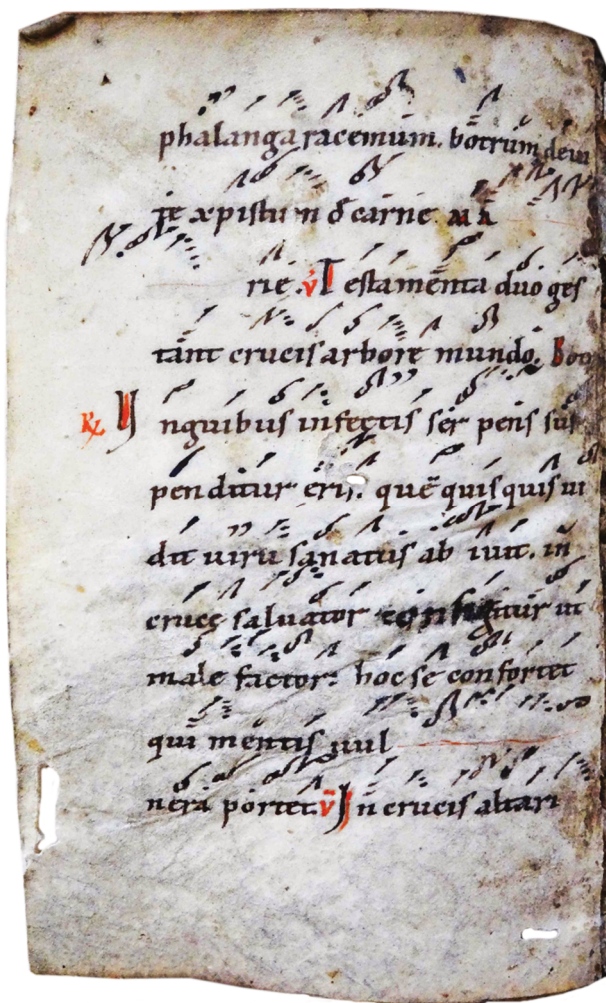 phalanga racemum. botrum devi
te xpistum d̄ carne ma
rie. v̄ Testamenta duo ges
tant crucis arbore mundo. Bot
R Ynguibus infectis ser pens sus
penditur eris. quē quis quis vi
dit virū sanatus ab ivit. in̄
cruce salvator configitur ut
male factor. hoc se confortet
qui mentis vul
nera portet. v̄ In̄ crucis altari